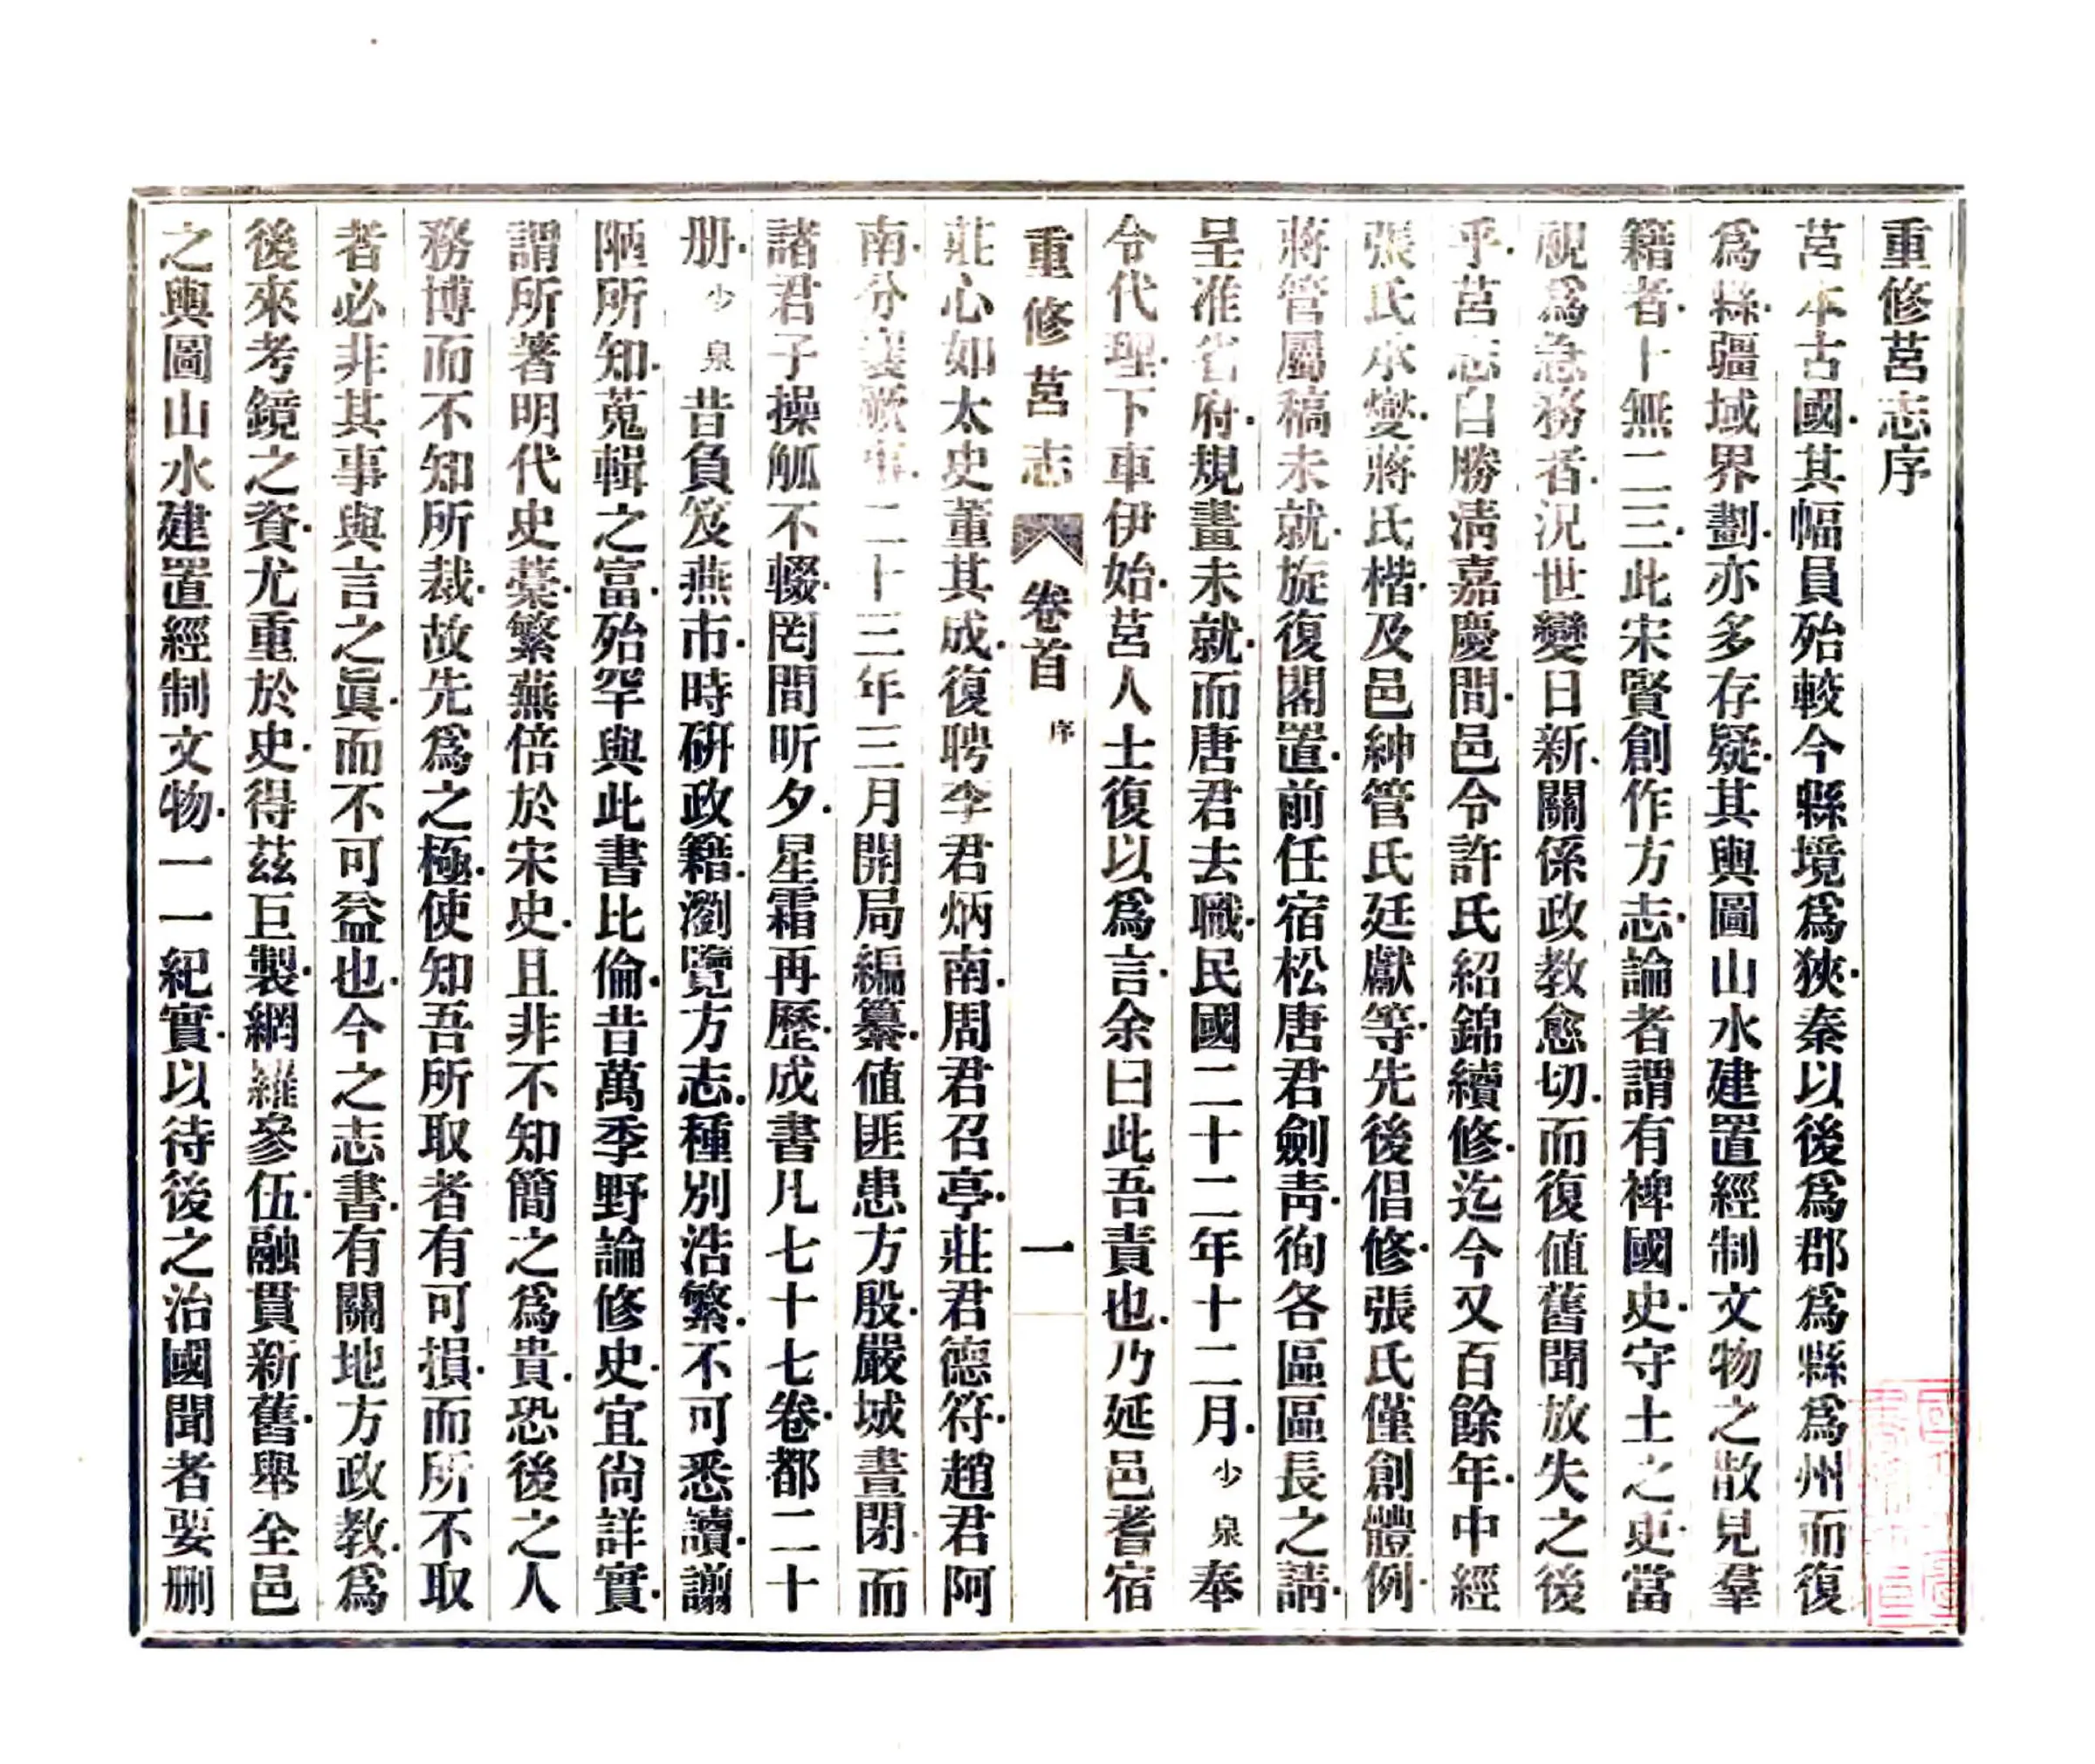 重修莒志序
莒本古國．其幅員殆較今縣境爲狹．秦以後爲郡爲縣爲州而復
爲縣．疆域界劃．亦多存疑．其輿圖山水建置經制文物之散見羣
籍者．十無二三．此宋賢創作方志．論者謂有裨國史．守土之吏．當
視爲急務者．況世變日新．關係政教愈切．而復値舊聞放失之後
乎．莒志自勝淸嘉慶間．邑令許氏紹錦續修．迄今又百餘年．中經
張氏承燮．蔣氏楷．及邑紳管氏廷獻等．先後倡修．張氏僅創體例．
蔣管屬稿未就．旋復閣置．前任宿松唐君劍靑．徇各區區長之請．
呈准省府．規畫未就．而唐君去職．民國二十二年十二月．少泉奉
令代理．下車伊始．莒人士復以爲言．余曰此吾責也．乃延邑耆宿
重修莒志 卷首 序 一
莊心如太史董其成．復聘李君炳南．周君召亭．莊君德符．趙君阿
南．分襄厥事．二十三年三月開局編纂．値匪患方殷．嚴城晝閉．而
諸君子操觚不輟．罔間昕夕．星霜再歷．成書凡七十七卷．都二十
册．少泉昔負笈燕市．時研政籍．瀏覽方志．種別浩繁．不可悉讀．謭
陋所知．蒐輯之富．殆罕與此書比倫．昔萬季野論修史．宜尙詳實．
謂所著明代史藁．繁蕪倍於宋史．且非不知簡之爲貴．恐後之人
務博而不知所裁．故先爲之極．使知吾所取者有可損．而所不取
者必非其事與言之眞．而不可益也．今之志書．有關地方政教．爲
後來考鏡之資．尤重於史．得茲巨製．網羅參伍．融貫新舊．舉全邑
之輿圖山水建置經制文物．一一紀實．以待後之治國聞者要删